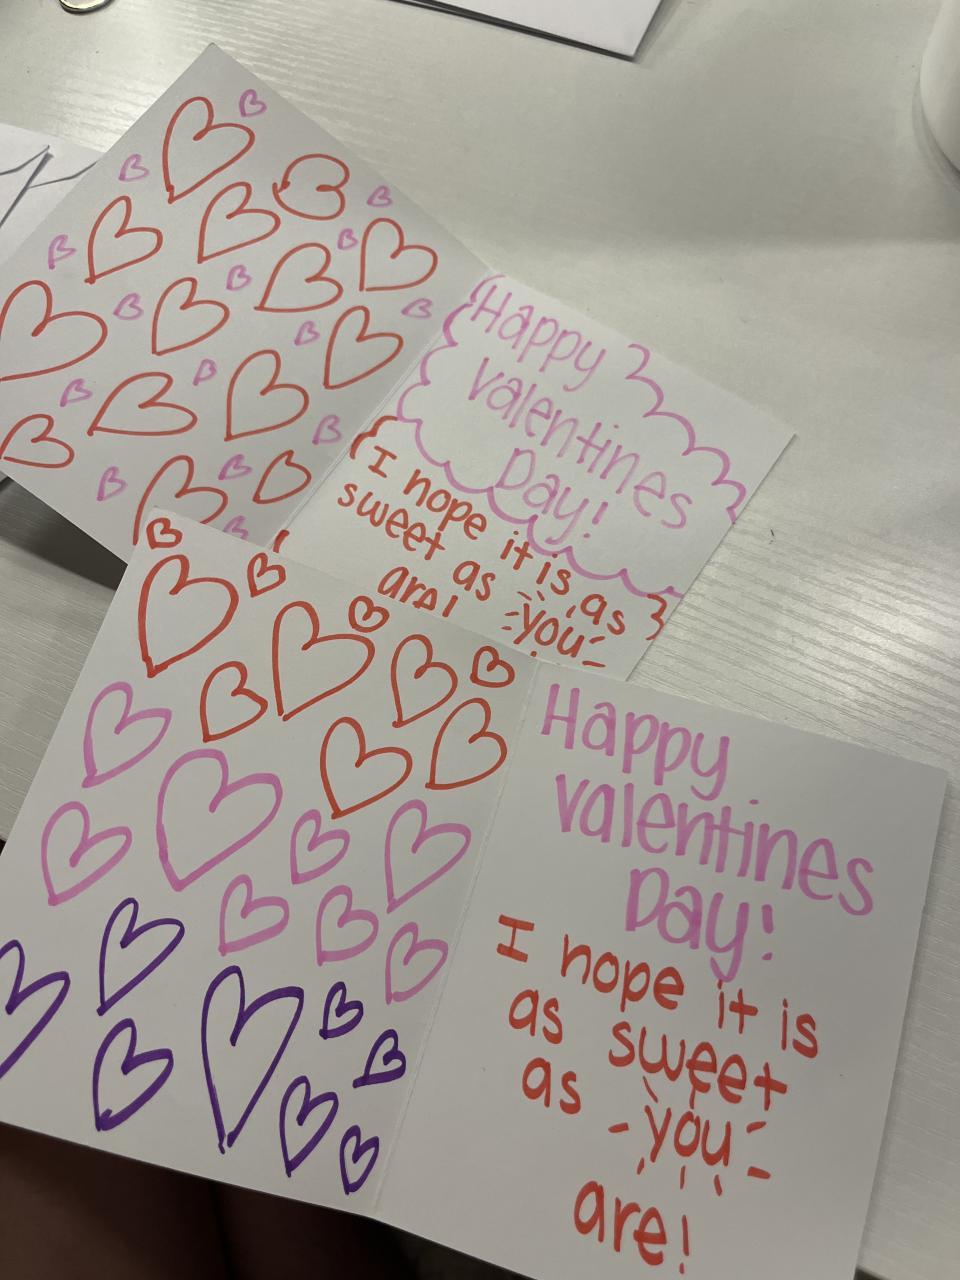 Happy
Valentines
Day!
I hope it is as
sweet as you
are!
Happy
Valentines
Day!
I hope it is
as sweet
as you
are!